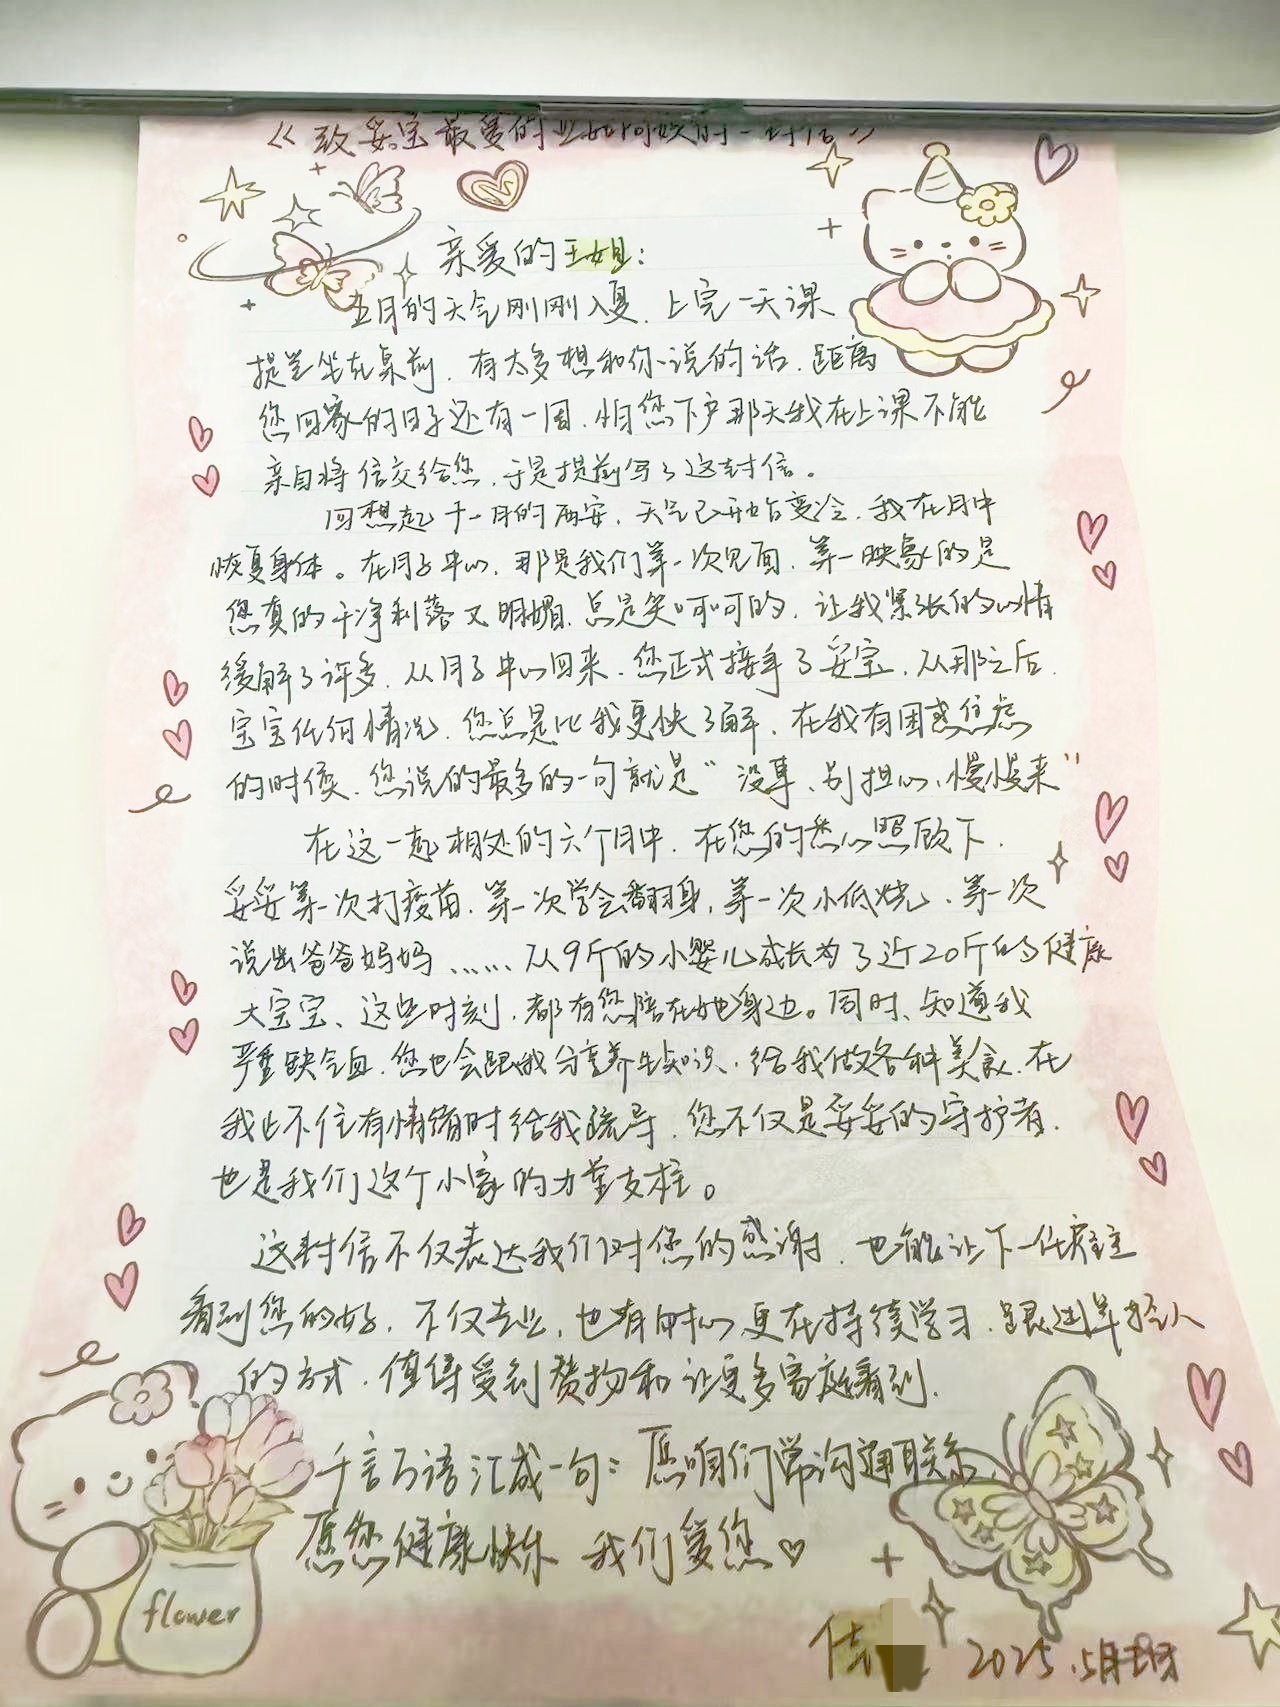 《致妥宝最爱的
亲爱的王姐：
五月的天气刚刚入夏，上完一天课
提笔坐在桌前，有太多想和你说的话，距离
您回家的日子还有一周，怕您下户那天我在上课不能
亲自将信交给您，于是提前写了这封信。
回想起十一月的西安，天气已开始变冷，我在月中
恢复身体。在月子中心，那是我们第一次见面，第一映象的是
您真的干净利落又明媚，总是笑呵呵的，让我紧张的心情
缓解了许多，从月子中心回来，您正式接手了妥宝，从那之后，
宝宝任何情况，您总是比我更快了解，在我有困惑焦虑
的时候，您说的最多的一句就是“没事、别担心、慢慢来”
在这一起相处的六个月中，在您的悉心照顾下，
妥妥第一次打疫苗，第一次学会翻身，第一次小低烧、第一次
说出爸爸妈妈……从9斤的小婴儿成长为了近20斤的健康
大宝宝、这些时刻，都有您陪在她身边。同时、知道我
严重缺气血，您也会跟我分享养生知识，给我做各种美食，在
我止不住有情绪时给我疏导，您不仅是妥妥的守护者，
也是我们这个小家的力量支柱。
这封信不仅表达我们对您的感谢，也能让下一任雇主
看到您的好，不仅专业，也有由心更在持续学习，跟进年轻人
的方式，值得受到赞扬和让更多家庭看到，
千言万语汇成一句：愿咱们常沟通联系，
愿您健康快乐 我们爱您♡
flower
佳 2025.5月